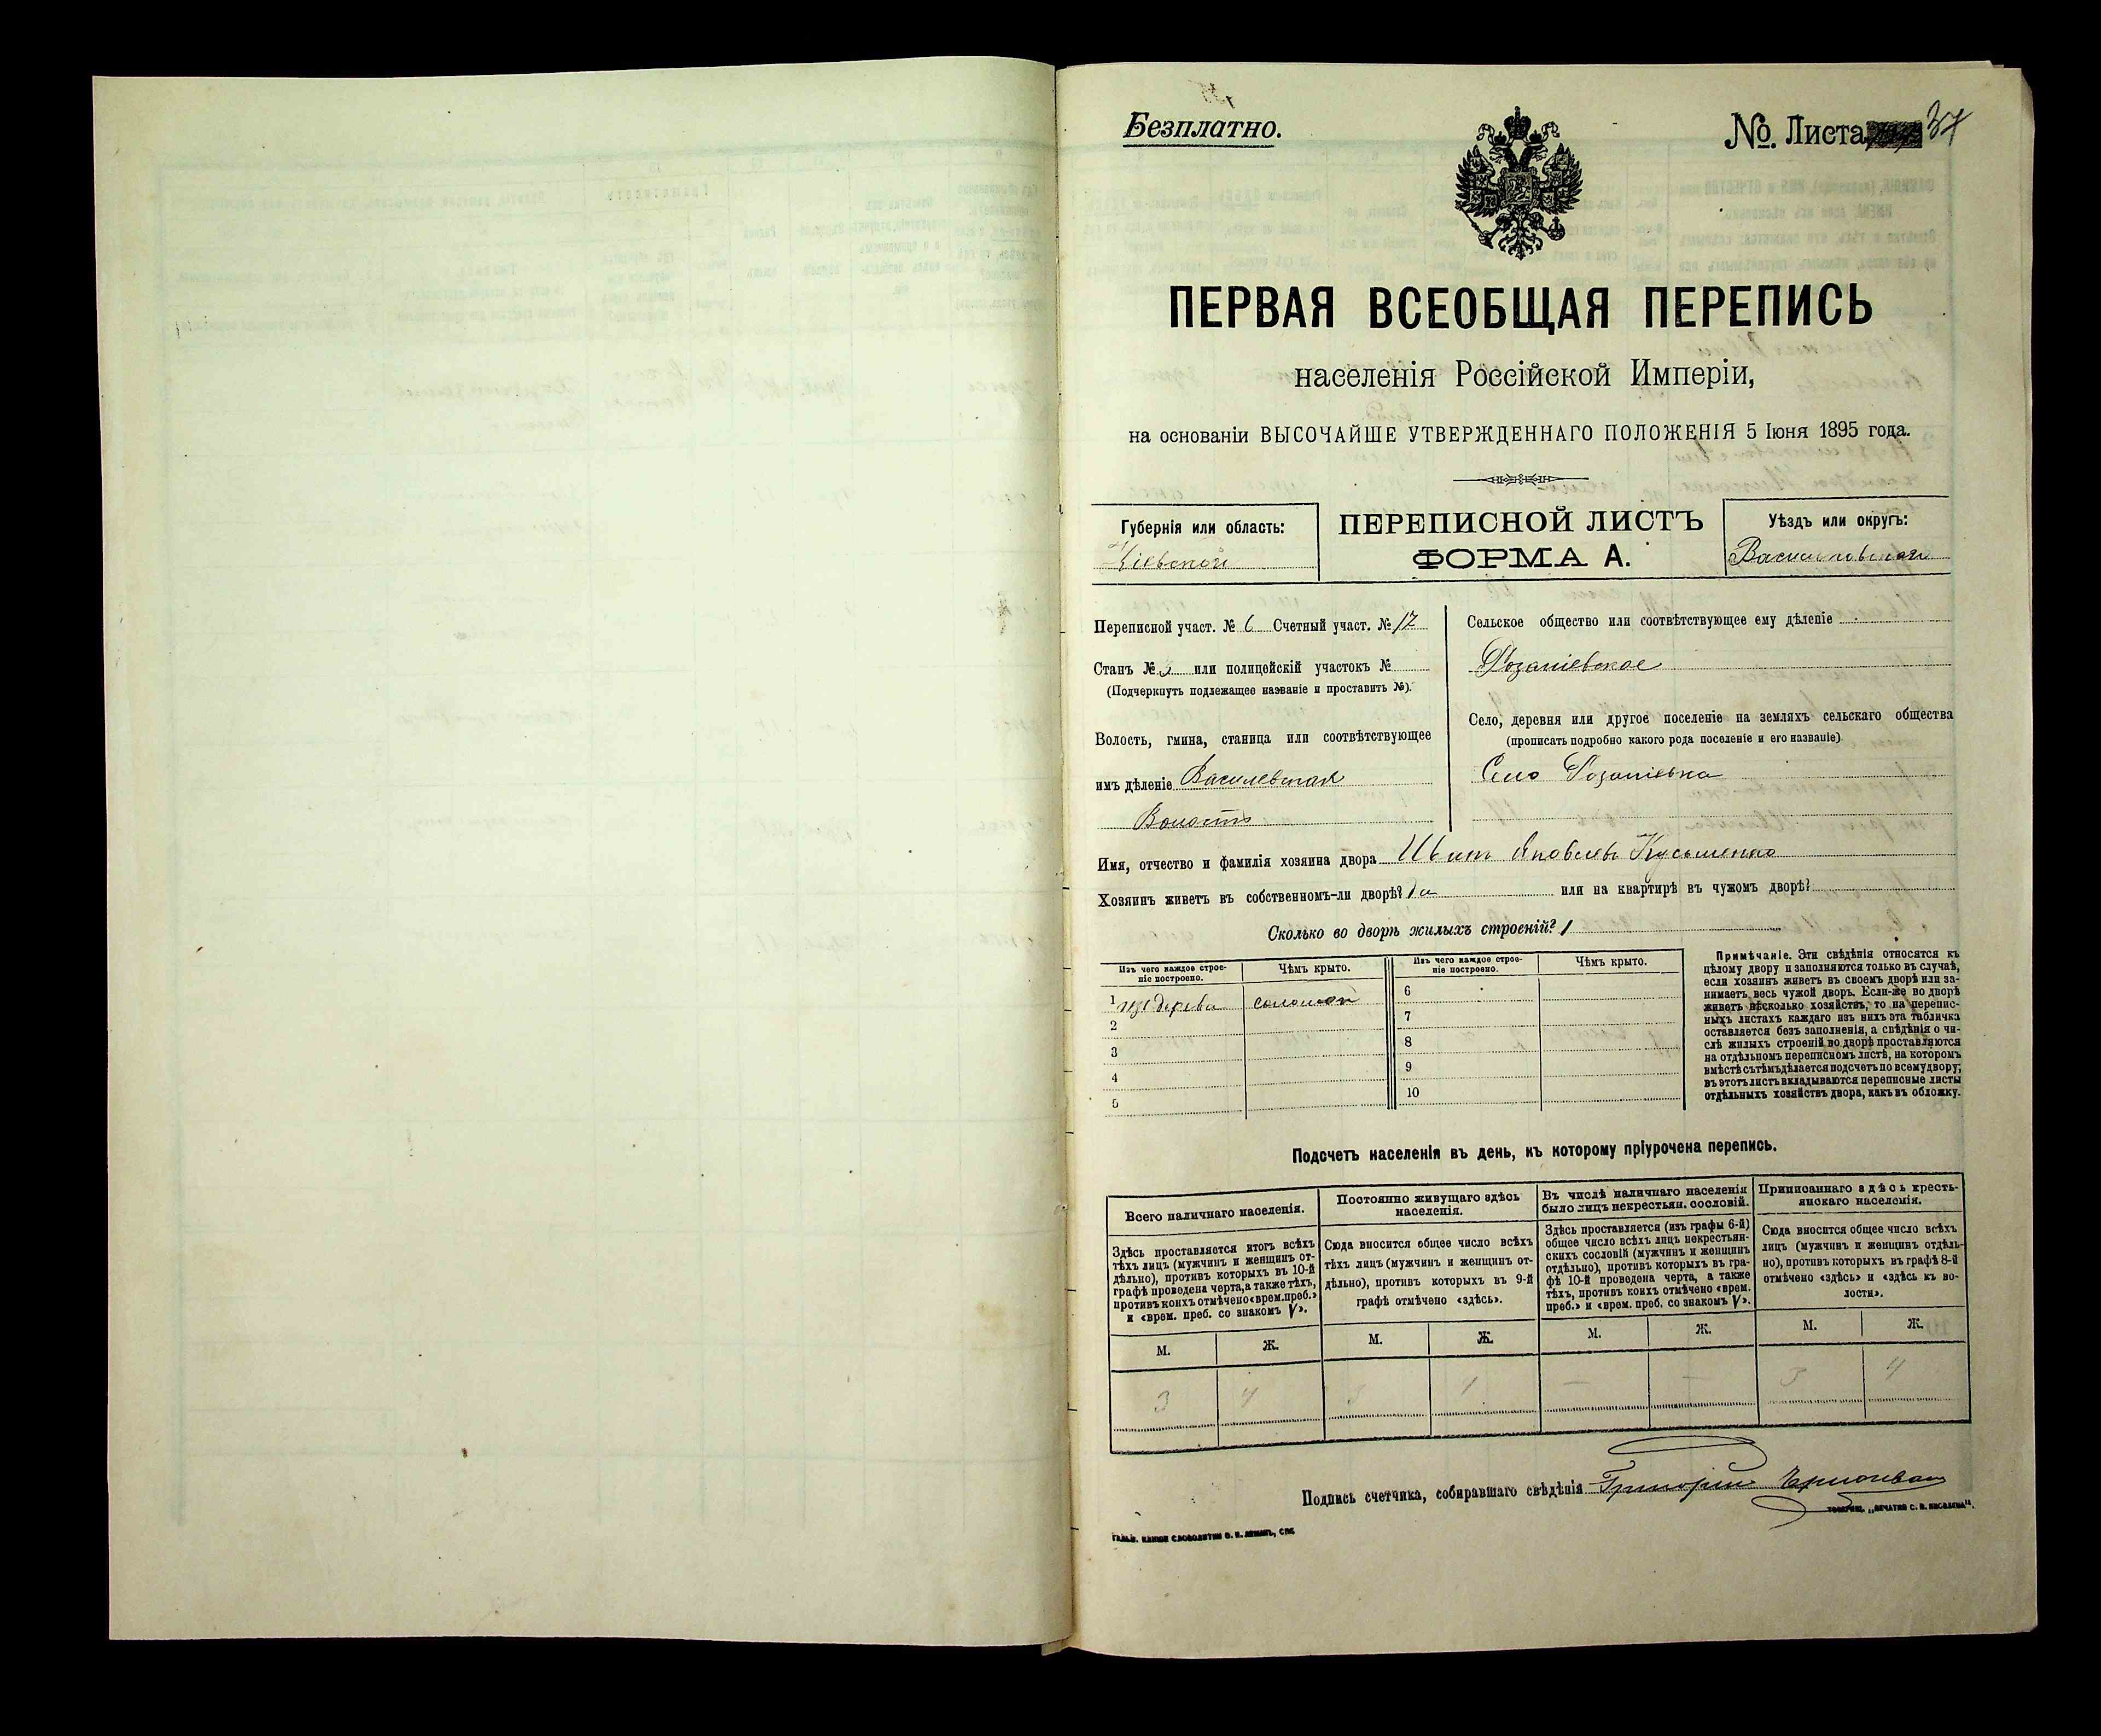 Безплатно.
№. Листа 37
ПЕРВАЯ ВСЕОБЩАЯ ПЕРЕПИСЬ
населенія Россійской Имперіи,
на основаніи ВЫСОЧАЙШЕ УТВЕРЖДЕННАГО ПОЛОЖЕНІЯ 5 Іюня 1895 года.
Губернія или область:
Кіевской
ПЕРЕПИСНОЙ ЛИСТЪ
ФОРМА А.
Уѣздъ или округъ:
Васильковской
Переписной участ. № 6 Счетный участ. № 12
Станъ № 3 или полицейскій участокъ №
(Подчеркнуть подлежащее названіе и проставить №).
Волость, гмина, станица или соотвѣтствующее
имъ дѣленіе
Волость
Сельское общество или соотвѣтствующее ему дѣленіе
Село, деревня или другое поселеніе на земляхъ сельскаго общества
(прописать подробно какого рода поселеніе и его названіе)
Село
Имя, отчество и фамилія хозяина двора Иванъ Яковлевъ
Хозяинъ живетъ въ собственномъ-ли дворѣ? да или на квартирѣ въ чужомъ дворѣ?
Сколько во дворѣ жилыхъ строеній? 1
Изъ чего каждое строе-
ніе построено.
Чѣмъ крыто.
1 изъ дерева соломой
2
3
4
5
Изъ чего каждое строе-
ніе построено.
Чѣмъ крыто.
6
7
8
9
10
Примѣчаніе. Эти свѣдѣнія относятся къ
цѣлому двору и заполняются только въ случаѣ,
если хозяинъ живетъ въ своемъ дворѣ или за-
нимаетъ весь чужой дворъ. Если-же во дворѣ
живетъ нѣсколько хозяйствъ, то на перепис-
ныхъ листахъ каждаго изъ нихъ эта табличка
оставляется безъ заполненія, а свѣдѣнія о чи-
слѣ жилыхъ строеній во дворѣ проставляются
на отдѣльномъ переписномъ листѣ, на которомъ
вмѣстѣ съ тѣмъ дѣлается подсчетъ по всему двору;
въ этотъ листъ вкладываются переписные листы
отдѣльныхъ хозяйствъ двора, какъ въ обложку.
Подсчетъ населенія въ день, къ которому пріурочена перепись.
Всего наличнаго населенія.
Здѣсь проставляется итогъ всѣхъ
тѣхъ лицъ (мужчинъ и женщинъ от-
дѣльно), противъ которыхъ въ 10-й
графѣ проведена черта, а также тѣхъ,
противъ коихъ отмѣчено «врем. преб.»
и «врем. преб. со знакомъ V».
М. Ж.
3 4
Постоянно живущаго здѣсь
населенія.
Сюда вносится общее число всѣхъ
тѣхъ лицъ (мужчинъ и женщинъ от-
дѣльно), противъ которыхъ въ 9-й
графѣ отмѣчено «здѣсь».
М. Ж.
3 4
Въ числѣ наличнаго населенія
было лицъ некрестьян. сословій.
Здѣсь проставляется (изъ графы 6-й)
общее число всѣхъ лицъ некрестьян-
скихъ сословій (мужчинъ и женщинъ
отдѣльно), противъ которыхъ въ гра-
фѣ 10-й проведена черта, а также
тѣхъ, противъ коихъ отмѣчено «врем.
преб.» и «врем. преб. со знакомъ V».
М. Ж.
— —
Приписаннаго здѣсь кресть-
янскаго населенія.
Сюда вносится общее число всѣхъ
лицъ (мужчинъ и женщинъ отдѣль-
но), противъ которыхъ въ графѣ 8-й
отмѣчено «здѣсь» и «здѣсь къ во-
лости».
М. Ж.
3 4
Подпись счетчика, собиравшаго свѣдѣнія Григорій